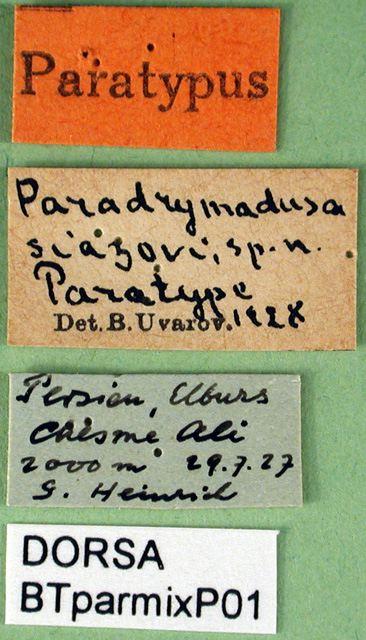 Paratypus
Paradrymadusa
siazovi, sp. n.
Paratype
Det. B. Uvarov. 1928
Persien, Elburs
Chesme Ali
2000 m 29.7.27
G. Heinrich
DORSA
BTparmixP01